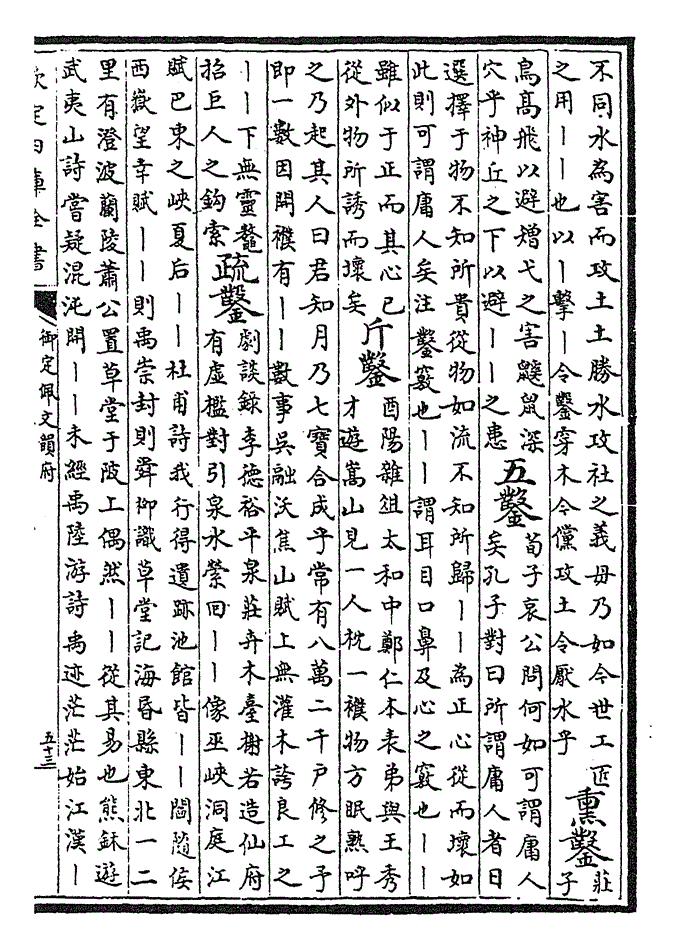 不同水為害而攻土土勝水攻社之義毋乃如今世工匠
之用丨丨也以丨擊丨令鑿穿木令儻攻土令厭水乎
熏鑿
莊
子
鳥髙飛以避矰弋之害鼷鼠深
穴乎神丘之下以避丨丨之患
五鑿
荀子哀公問何如可謂庸人
矣孔子對曰所謂庸人者日
選擇于物不知所貴從物如流不知所歸丨丨為正心從而壞如
此則可謂庸人矣注鑿竅也丨丨謂耳目口鼻及心之竅也丨丨
雖似于正而其心已
從外物所誘而壞矣
斤鑿
酉陽雜俎太和中鄭仁本表弟與王秀
才遊嵩山見一人枕一襆物方眠熟呼
之乃起其人曰君知月乃七寶合成乎常有八萬二千戸修之予
即一數因開襆有丨丨數事吳融沃焦山賦上無灌木誇良工之
丨丨下無靈鼇
掐巨人之鈎索
疏鑿
劇談錄李德裕平泉莊卉木臺榭若造仙府
有虛檻對引泉水縈回丨丨像巫峽洞庭江
賦巴東之峽夏后丨丨杜甫詩我行得遺跡池館皆丨丨閻隨侫
西嶽望幸賦丨丨則禹崇封則舜柳識草堂記海昏縣東北一二
里有澄波蘭陵蕭公置草堂于陂上偶然丨丨從其易也熊鉌遊
武夷山詩嘗疑混沌開丨丨未經禹陸游詩禹迹茫茫始江漢丨
欽定四庫全書
御定佩文韻府
五十三